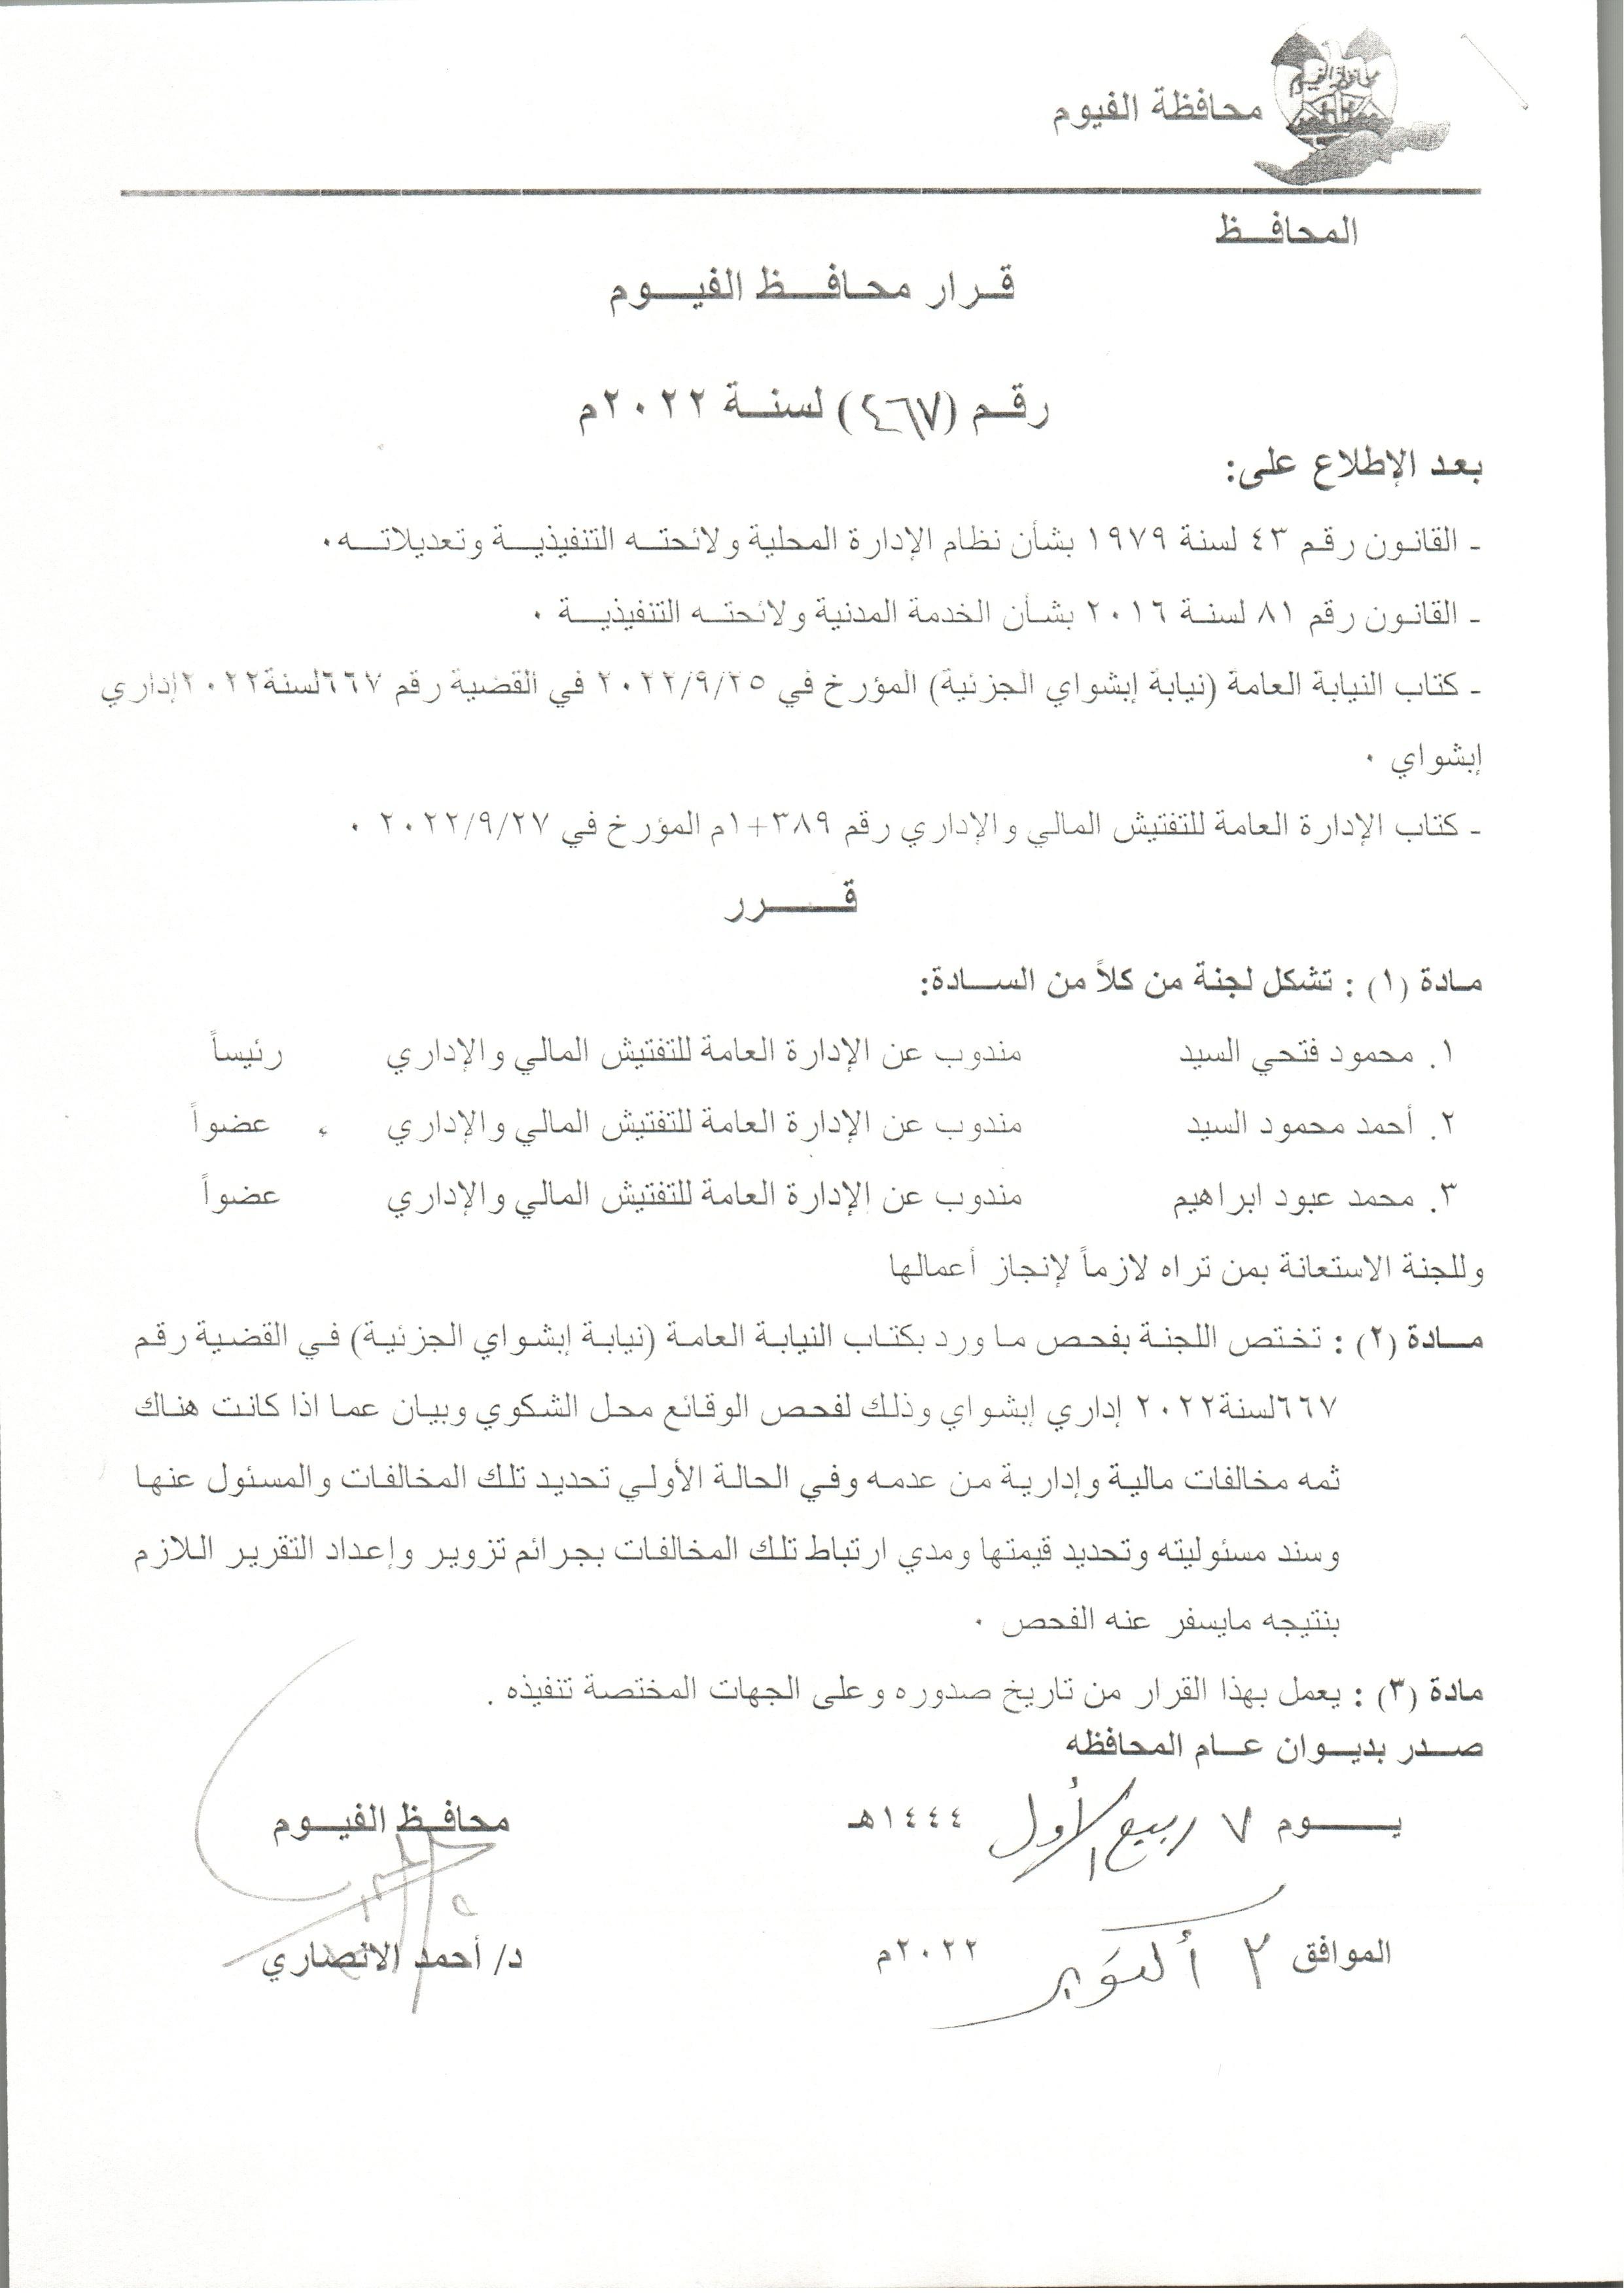 محافظة الفيوم
محافظة الفيوم
المحافظ
قرار محافظ الفيوم
رقم (٤٦٧) لسنة ٢٠٢٢م
بعد الإطلاع على:
- القانون رقم ٤٣ لسنة ١٩٧٩ بشأن نظام الإدارة المحلية ولائحته التنفيذية وتعديلاته٠
- القانون رقم ٨١ لسنة ٢٠١٦ بشأن الخدمة المدنية ولائحته التنفيذية ٠
- كتاب النيابة العامة (نيابة إبشواي الجزئية) المؤرخ في ٢٠٢٢/٩/٢٥ في القضية رقم ٦٦٧لسنة٢٠٢٢إداري
إبشواي ٠
- كتاب الإدارة العامة للتفتيش المالي والإداري رقم ٣٨٩+١م المؤرخ في ٢٠٢٢/٩/٢٧ ٠
قرر
مادة (١) : تشكل لجنة من كلاً من السادة:
١. محمود فتحي السيد مندوب عن الإدارة العامة للتفتيش المالي والإداري رئيساً
٢. أحمد محمود السيد مندوب عن الإدارة العامة للتفتيش المالي والإداري عضواً
٣. محمد عبود ابراهيم مندوب عن الإدارة العامة للتفتيش المالي والإداري عضواً
وللجنة الاستعانة بمن تراه لازماً لإنجاز أعمالها
مادة (٢) : تختص اللجنة بفحص ما ورد بكتاب النيابة العامة (نيابة إبشواي الجزئية) في القضية رقم
٦٦٧لسنة٢٠٢٢ إداري إبشواي وذلك لفحص الوقائع محل الشكوي وبيان عما اذا كانت هناك
ثمه مخالفات مالية وإدارية من عدمه وفي الحالة الأولي تحديد تلك المخالفات والمسئول عنها
وسند مسئوليته وتحديد قيمتها ومدي ارتباط تلك المخالفات بجرائم تزوير وإعداد التقرير اللازم
بنتيجه مايسفر عنه الفحص ٠
مادة (٣) : يعمل بهذا القرار من تاريخ صدوره وعلى الجهات المختصة تنفيذه .
صدر بديوان عام المحافظه
يوم ٧ ربيع الأول ١٤٤٤هـ
محافظ الفيوم
الموافق ٢ أكتوبر ٢٠٢٢م
د/ أحمد الانصاري